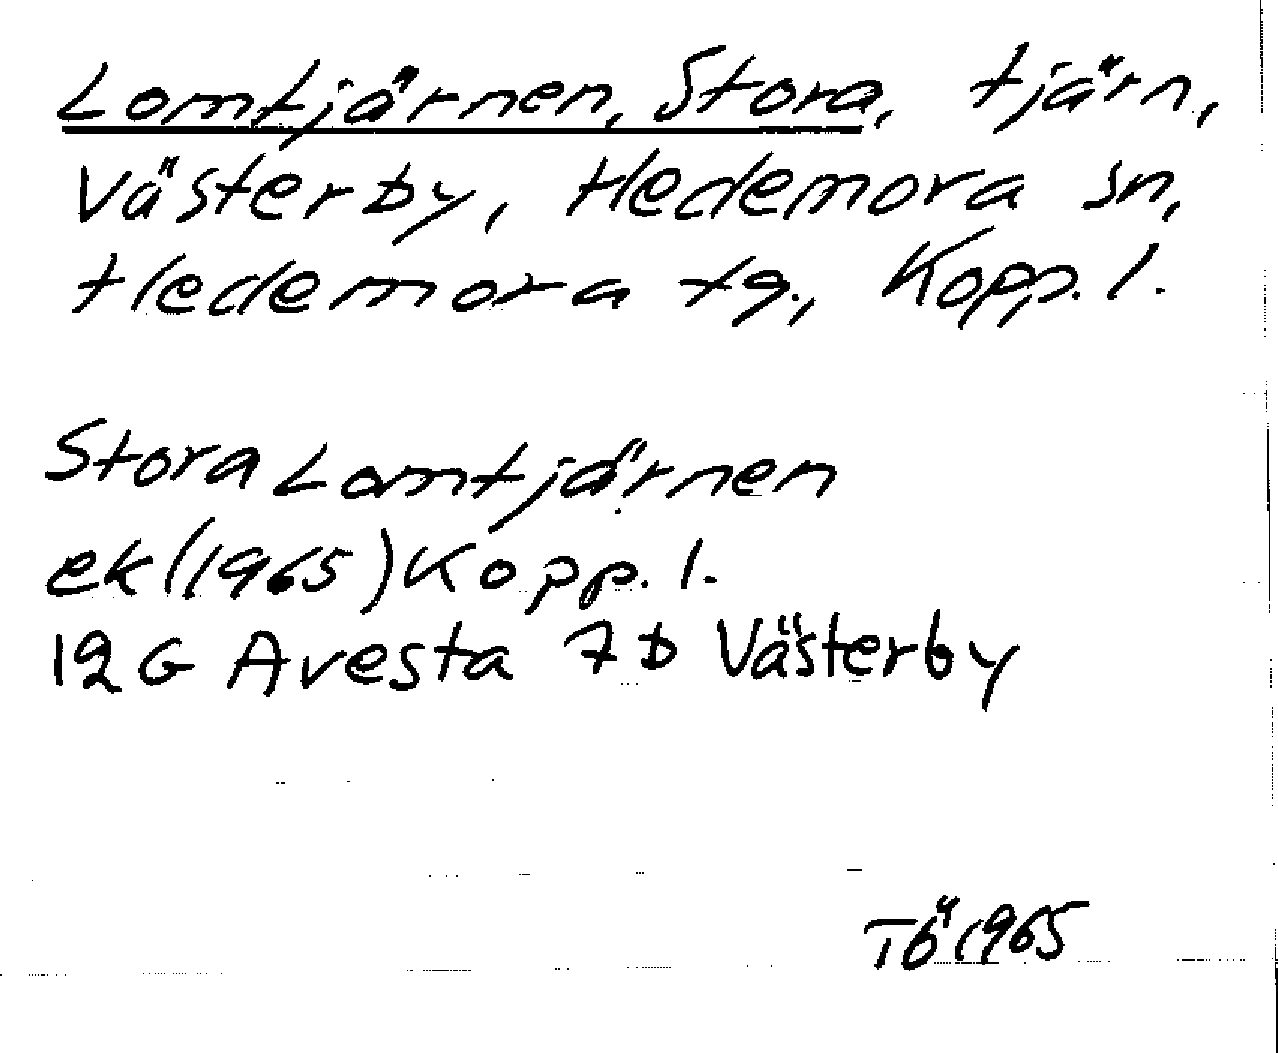 Lomtjärnen, Stora, tjärn,
Västerby, Hedemora sn,
Hedemora tg., Kopp. l.
Stora Lomtjärnen
ek (1965) Kopp. l.
12 G Avesta 7 b Västerby
TÖ 1965